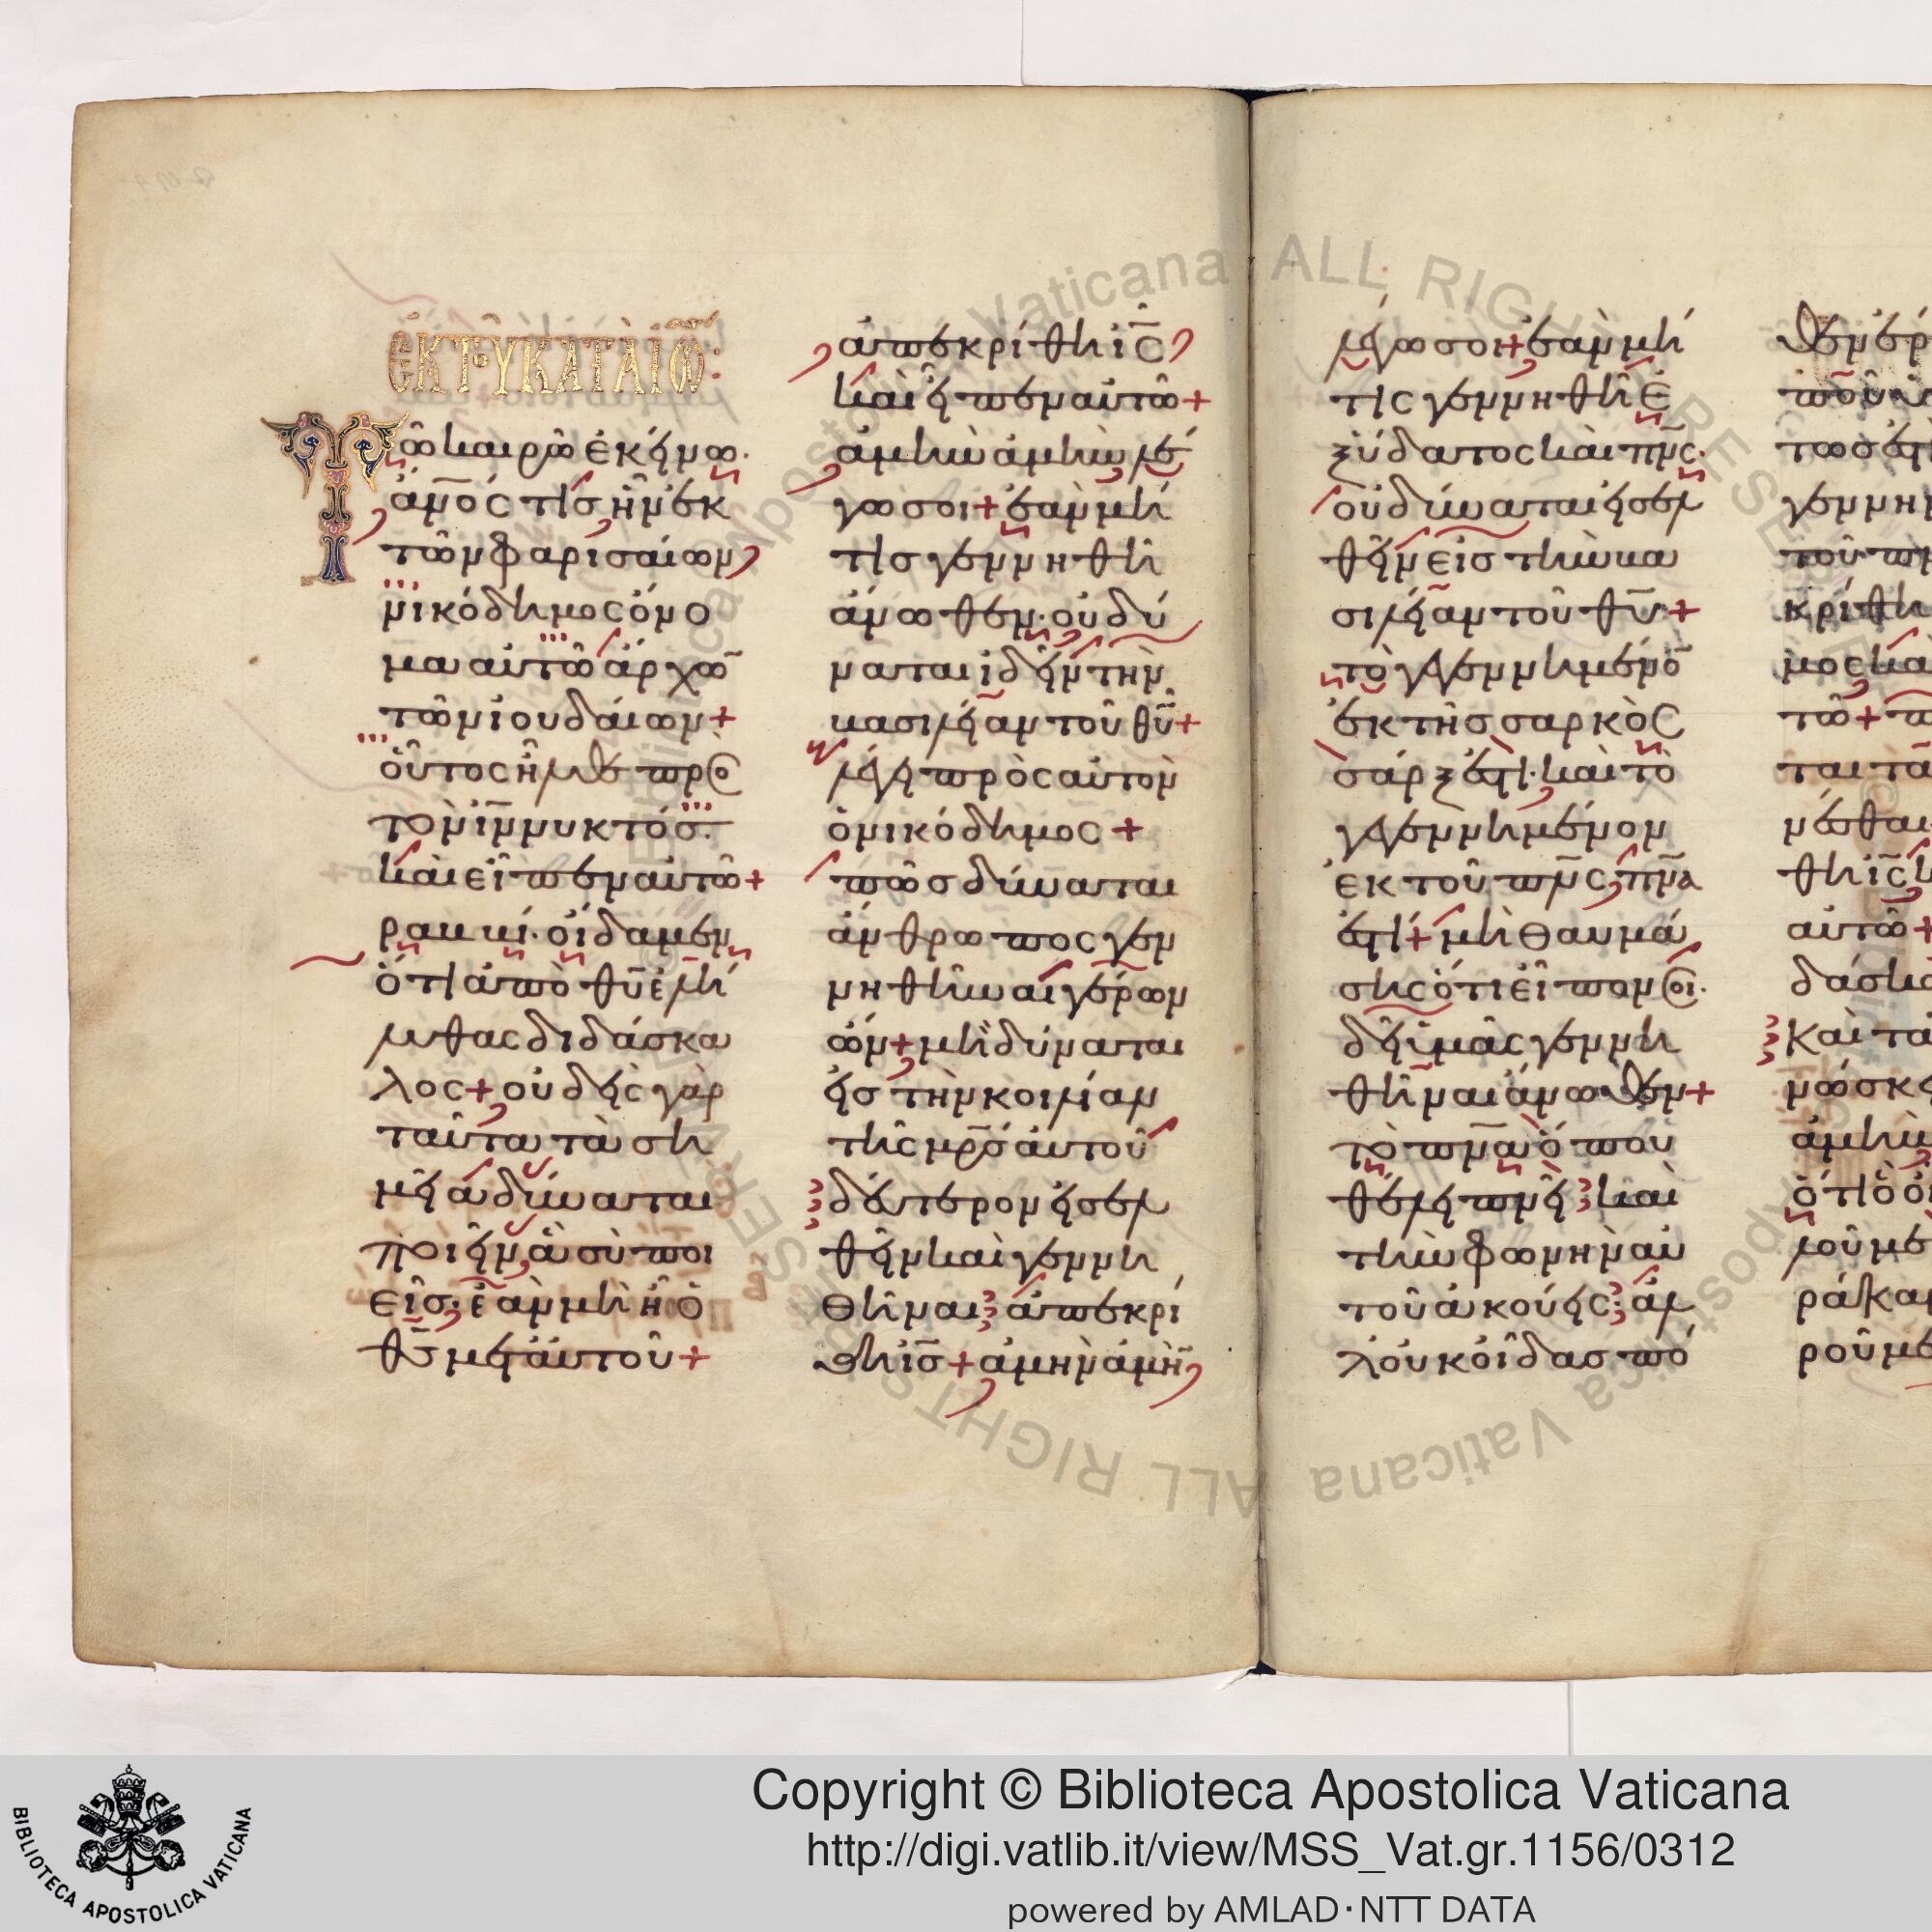 ἐκ τοῦ κατὰ ἰω:
Τῶ καιρῶ ἐκείνω.
ἀνος τίσ ἦν ἐκ
τῶν φαρισαίων
νικόδημος ὄνο
μα αὐτῶ ἄρχω̃
τῶν ἰουδαίων+
οὗτος ἦλθε προ
τὸν ιν νυκτόσ.
καὶ εἶπεν αὐτῶ+
ραββί. οἴδαμεν
ὅτι ἀπὸ θυ ἐλή
λυθας διδάσκα
λος+ οὐδεὶς γὰρ
ταῦτα τὰ ση
μεῖα δύναται
ποιεῖν ἃ σὺ ποι
εῖσ. ἐὰν μὴ ἦ ὁ
θσ μετ' αὐτοῦ+
ἀπεκρίθη ὁ ις
καὶ εἶπεν αὐτῶ+
ἀμὴν ἀμὴν λέ
γω σοι+ ἐὰν μή
τισ γεννηθῆ
ἄνωθεν. οὐ δύ
ναται ἰδεῖν τὴν
βασιλείαν τοῦ θυ+
λέγει πρὸς αὐτὸν
ὁ νικόδημος+
πῶσ δύναται
ἄνθρωπος γεν
νηθῆναι γέρων
ὤν+ μὴ δύναται
εἰσ τὴν κοιλίαν
τῆς μρσ αὐτοῦ
δεύτερον εἰσελ
θεῖν καὶ γεννη
θῆναι ἀπεκρί
θη ισ+ ἀμὴν ἀμὴν
λέγω σοι+ ἐὰν μή
τις γεννηθῆ ἐ
ξ ὕδατος καὶ πνς.
οὐ δύναται εἰσελ
θεῖν εἰσ τὴν βα
σιλείαν τοῦ θυ+
τὸ γεγεννημένο̃
ἐκ τῆσ σαρκὸς
σάρξ ἐστι. καὶ τὸ
γεγεννημένον
ἐκ τοῦ πνς πνα
ἐστι+ μὴ θαυμά
σης ὅτι εἶπον σοι.
δεῖ ὑμᾶς γεννη
θῆναι ἄνωθεν+
τὸ πνα ὅπου
θέλει πνεῖ καὶ
τὴν φωνὴν αὐ
τοῦ ἀκούεις. ἀλ
λ' οὐκ οἶδασ πό
Copyright © Biblioteca Apostolica Vaticana
http://digi.vatlib.it/view/MSS_Vat.gr.1156/0312
powered by AMLAD·NTT DATA
BIBLIOTECA APOSTOLICA VATICANA